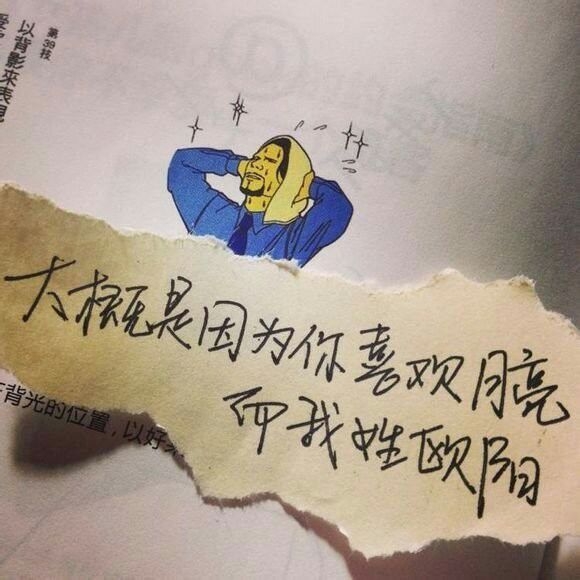 第39技
以背影來表現
大概是因为你喜欢月亮
而我姓欧阳
背光的位置,以好